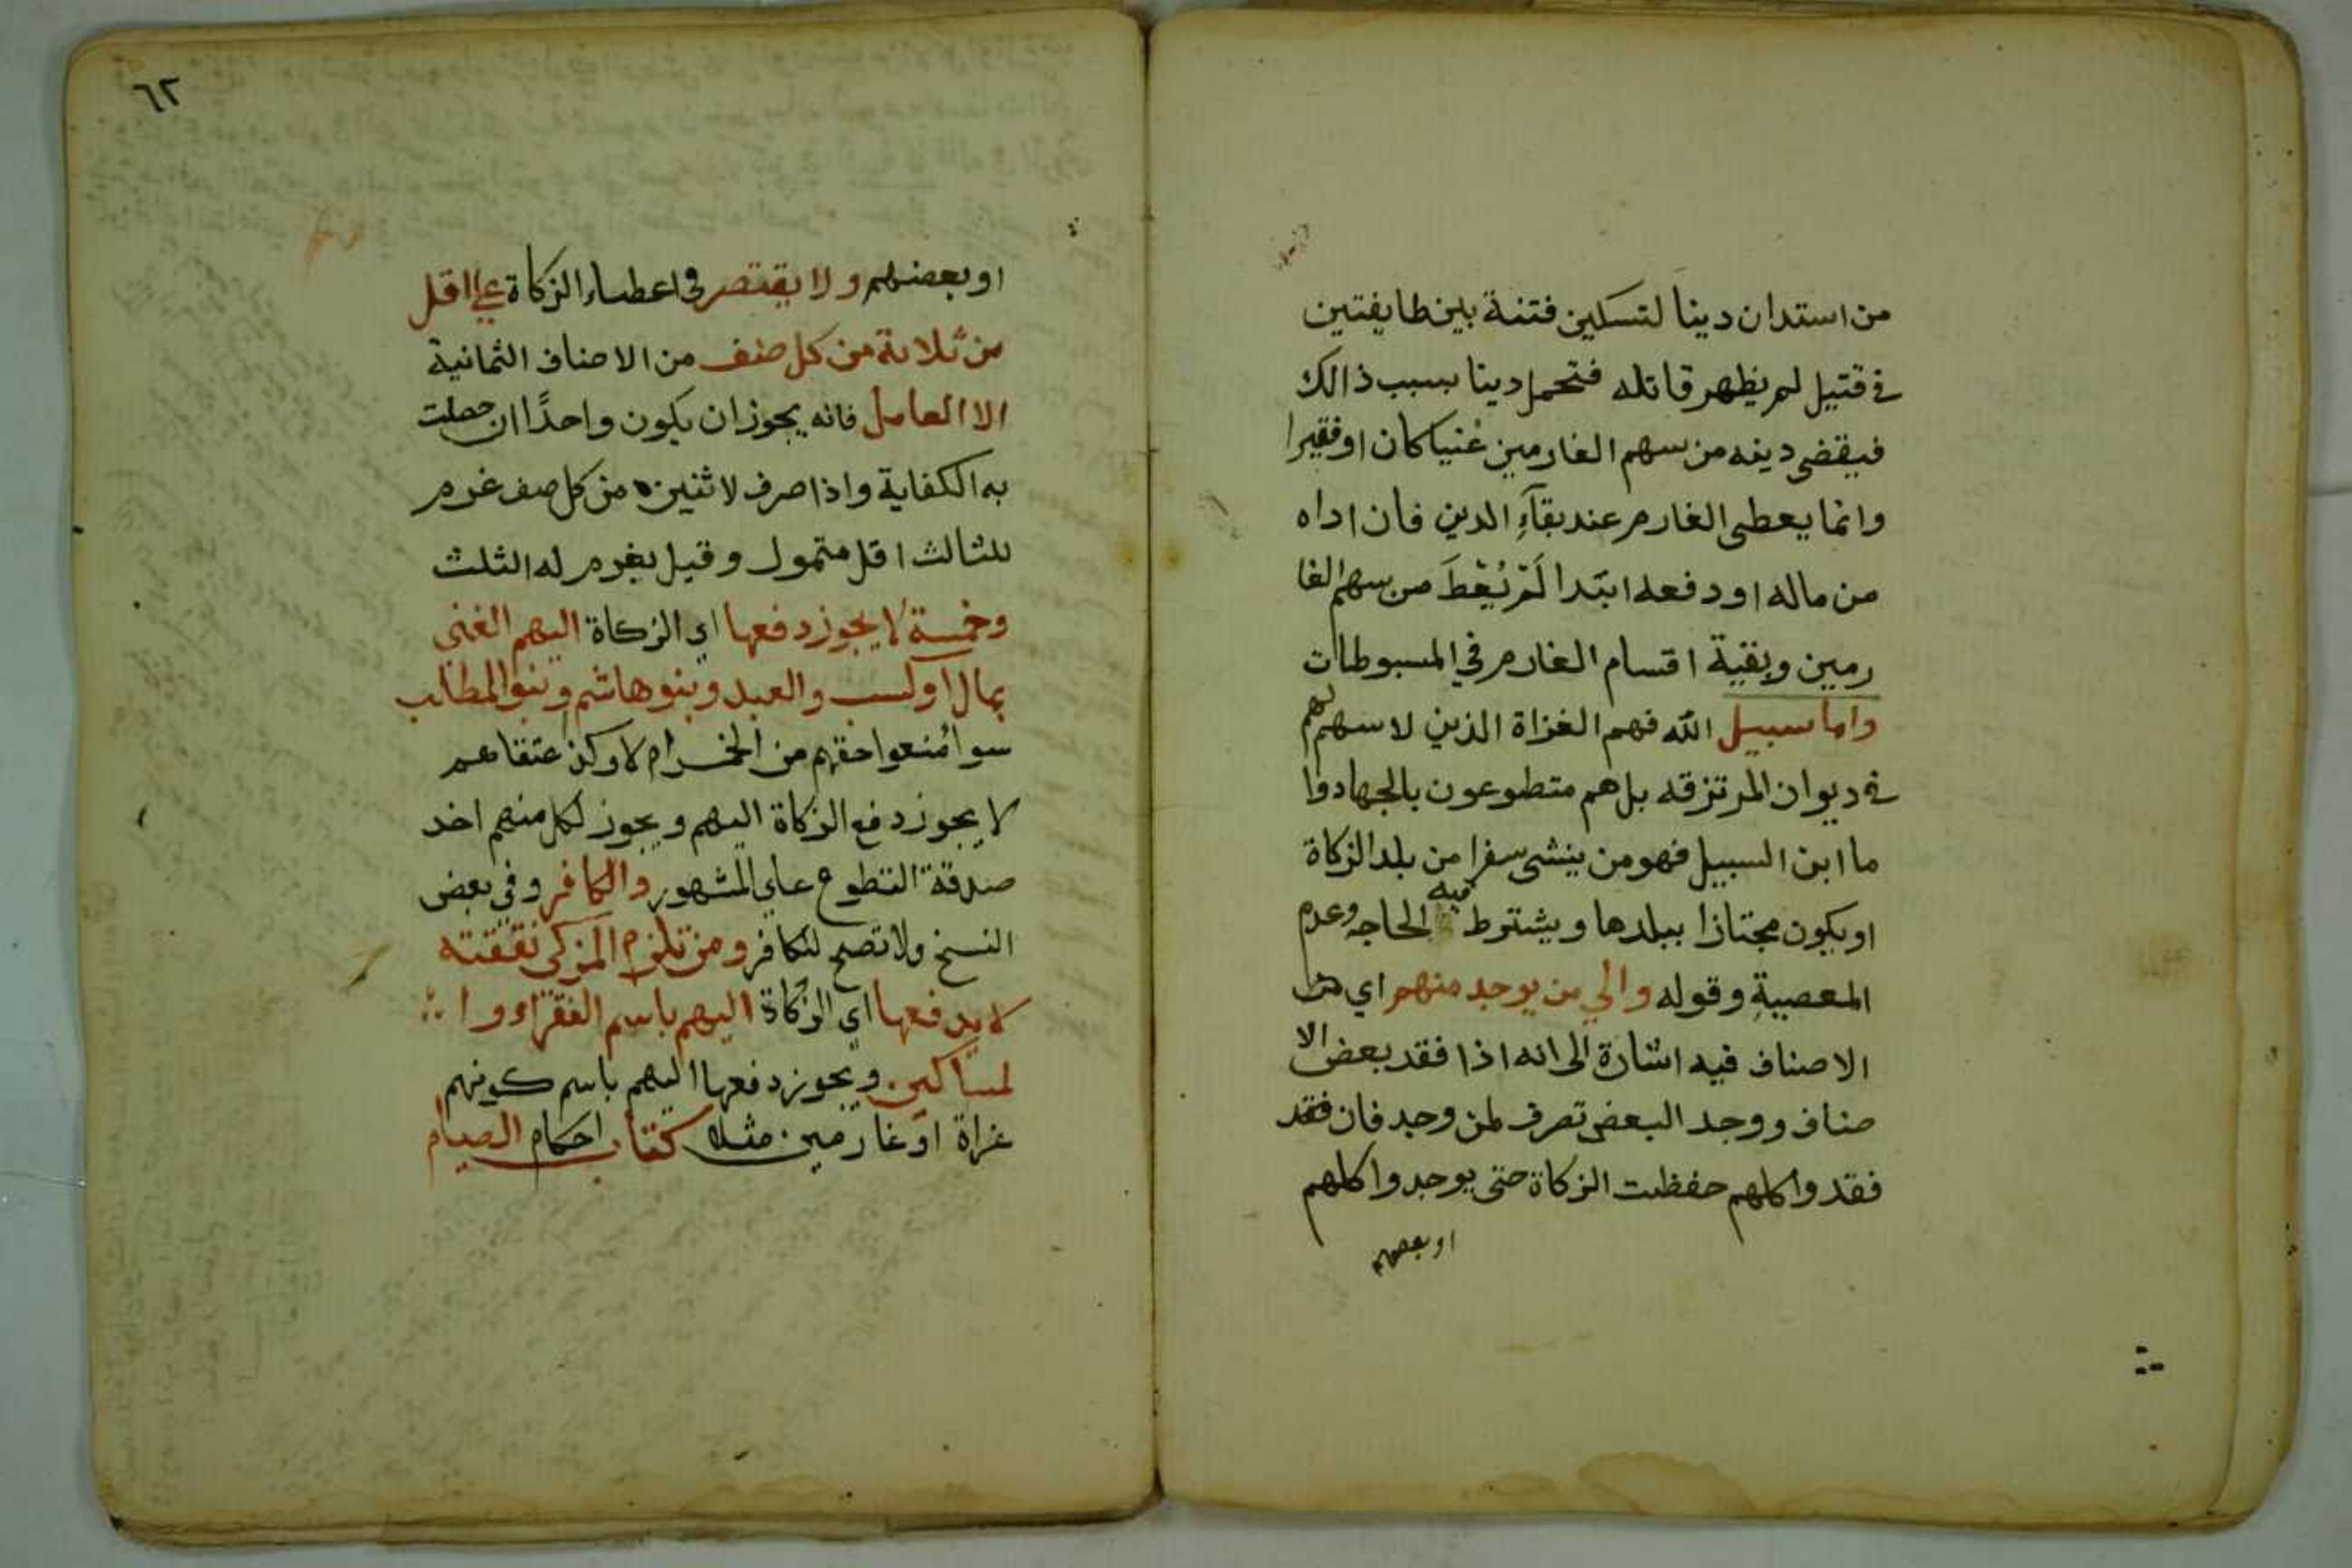 من استدان دينا لتسكين فتنة بين طايفتين
في قتيل لم يظهر قاتله فتحمل دينا بسبب ذالك
فيقضى دينه من سهم الغارمين غنيا كان او فقيرا
وانما يعطى الغارم عند بقآءِ الدين فان اداه
من ماله او دفعه ابتدا لَمْ يُعْطَ من سهم الغا
رمين وبقية اقسام الغارم في المبسوطات
واما سبيل الله فهم الغزاة الذين لا سهم لهم
في ديوان المرتزقه بل هم متطوعون بالجهاد وا
ما ابن السبيل فهو من ينشى سفرا من بلد الزكاة
او يكون مجتازا ببلدها ويشترط فيه الحاجه وعدم
المعصية وقوله والي من يوجد منهم اي من
الاصناف فيه اشارة الى انه اذا فقد بعض الا
صناف ووجد البعض تصرف لمن وجد فان فقد
فقدوا كلهم حفظت الزكاة حتى يوجدوا كلهم
او بعضهم
٦٢
او بعضهم ولا يقتصر في اعطاء الزكاة على اقل
من ثلاثة من كل صنف من الاصناف الثمانية
الا العامل فانه يجوز ان يكون واحدًا ان حصلت
به الكفاية واذا صرف لاثنين من كل صنف غرم
للثالث اقل متمول وقيل يغرم له الثلث
وخمسة لا يجوز دفعها اي الزكاة اليهم الغنى
بمال او كسب والعبد وبنو هاشم وبنو المطلب
سوا مُنعوا حقهم من الخمس ام لا وكذ عتقاهم
لا يجوز دفع الزكاة اليهم ويجوز لكل منهم اخد
صدقة التطوع على المشهور والكافر وفي بعض
النسخ ولا تصح للكافر ومن تلزم المزكى نفقته
لا يدفعها اي الزكاة اليهم باسم الفقراء وا
لمساكين ويجوز دفعها اليهم باسم كونهم
غزاة او غارمين مثلا كتاب احكام الصيام